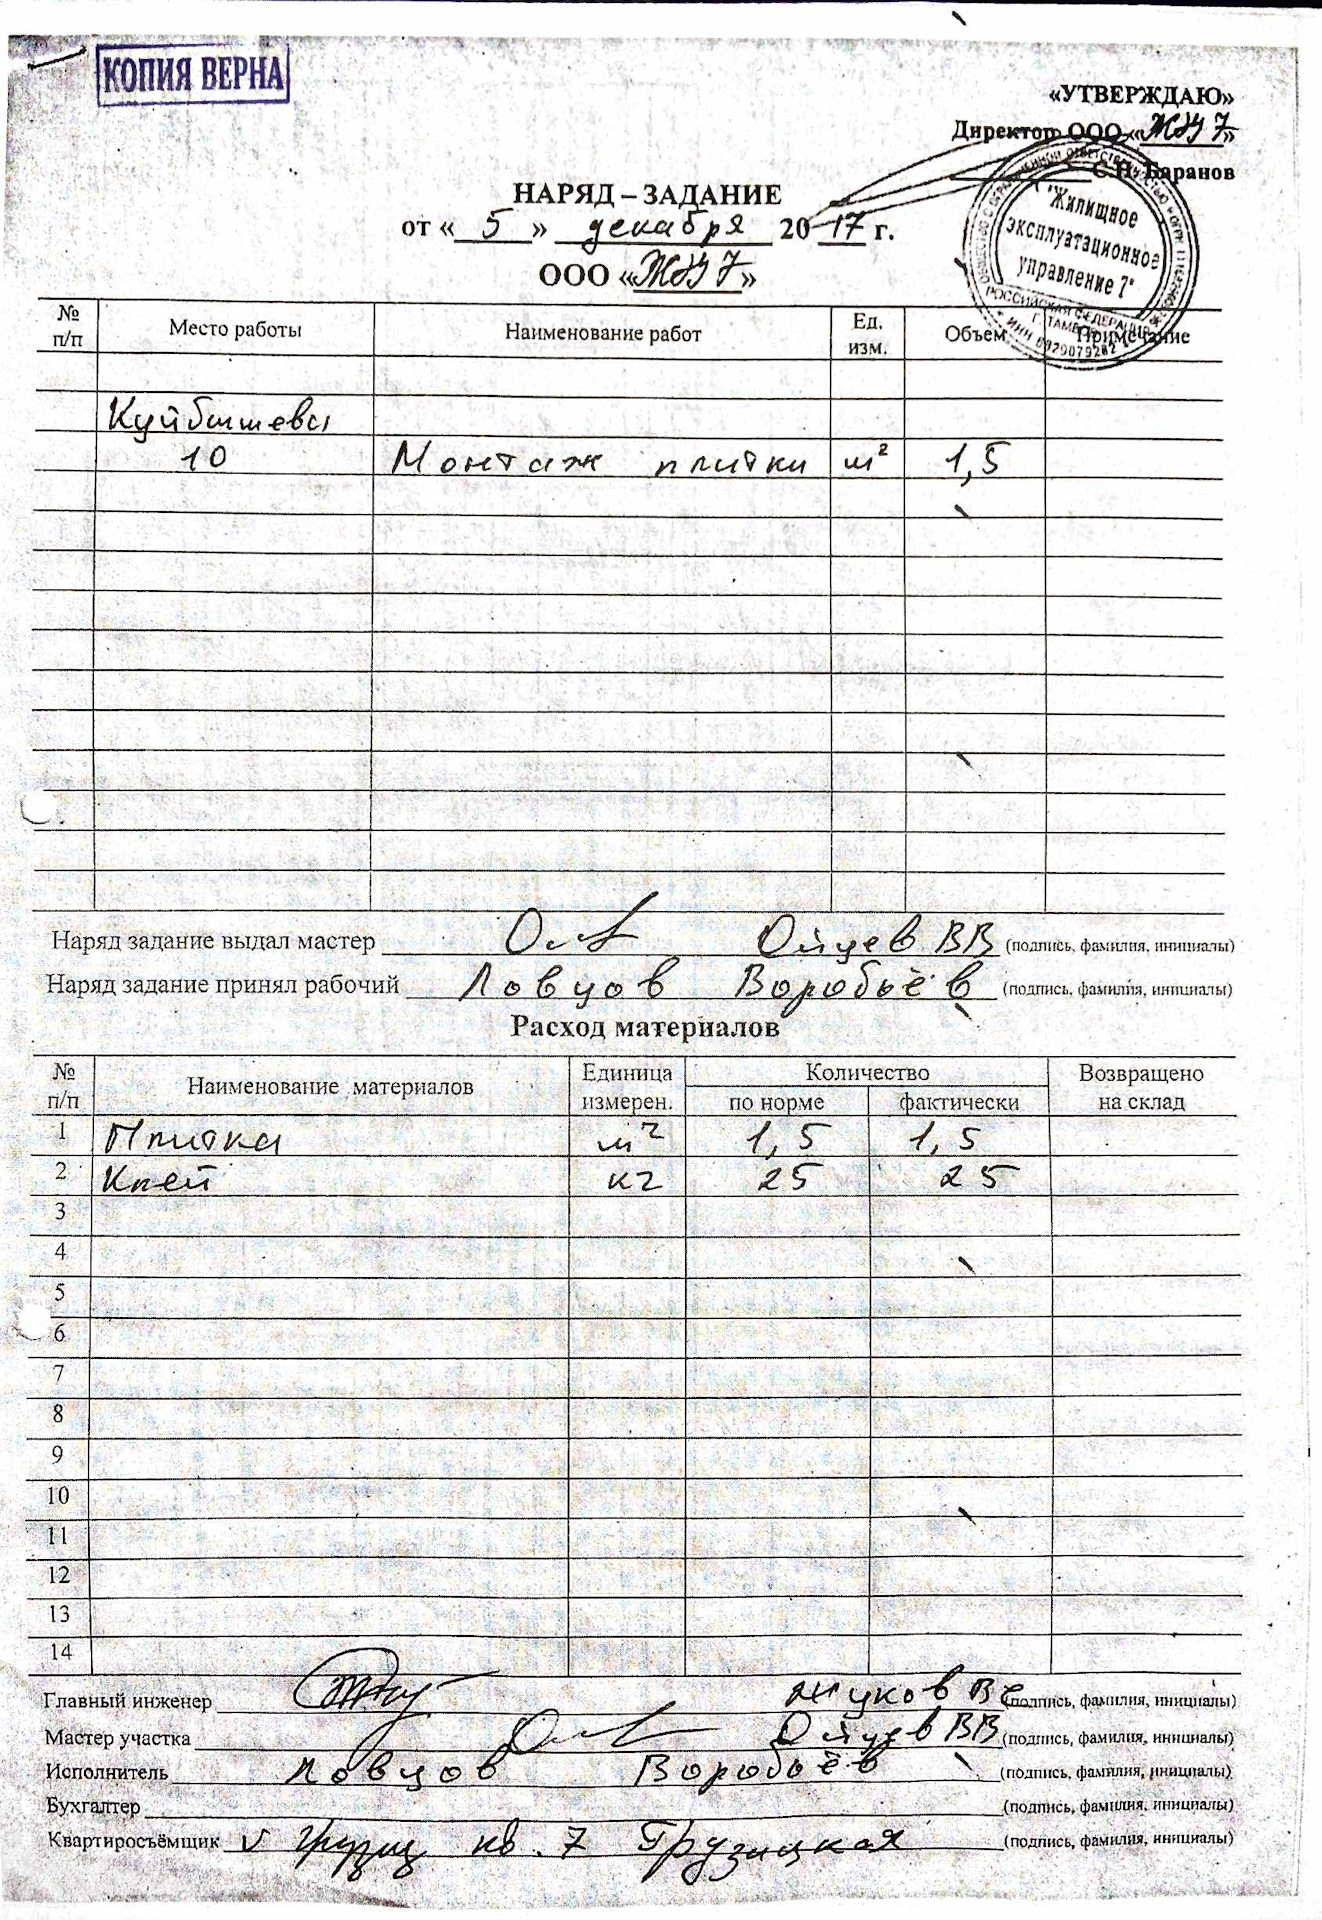 КОПИЯ ВЕРНА
«УТВЕРЖДАЮ»
Директор ООО «ЖЭУ 7»
С.Н. Баранов
"Жилищное
эксплуатационное
управление 7"
РОССИЙСКАЯ ФЕДЕРАЦИЯ
Г. ТАМБОВ
НАРЯД – ЗАДАНИЕ
от « 5 » декабря 20 17 г.
ООО «ЖЭУ 7»
№ п/п Место работы Наименование работ Ед. изм. Объем Примечание
Куйбышева
10 Монтаж плитки м² 1,5
Наряд задание выдал мастер Ойцев ВВ (подпись, фамилия, инициалы)
Наряд задание принял рабочий Ловцов Воробьёв (подпись, фамилия, инициалы)
Расход материалов
№ п/п Наименование материалов Единица измерен. Количество Возвращено на склад
по норме фактически
1 Плитка м² 1,5 1,5
2 Клей кг 25 25
3
4
5
6
7
8
9
10
11
12
13
14
Главный инженер Жуков ВС (подпись, фамилия, инициалы)
Мастер участка Ойцев ВВ (подпись, фамилия, инициалы)
Исполнитель Ловцов Воробьёв (подпись, фамилия, инициалы)
Бухгалтер (подпись, фамилия, инициалы)
Квартиросъёмщик v кв. 7 Грузицкая (подпись, фамилия, инициалы)